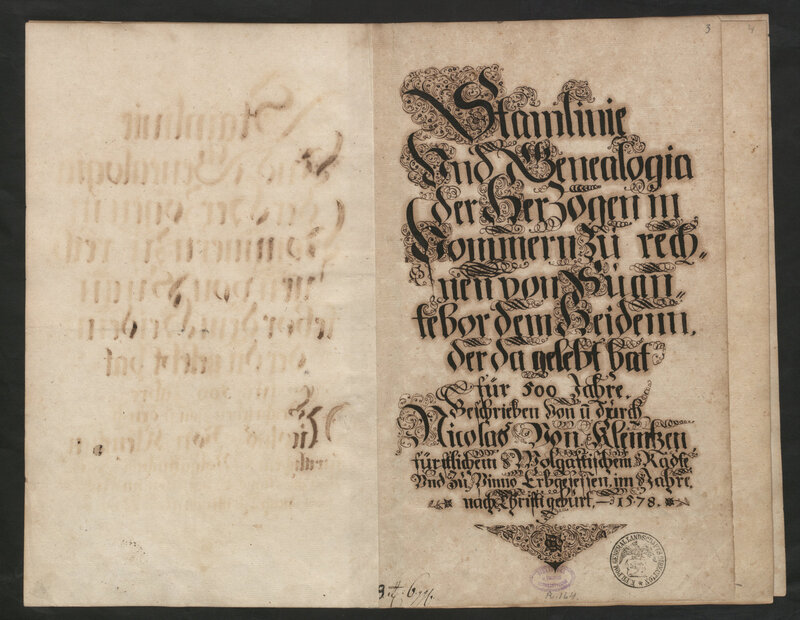 3
4
Stamlinie
Und Genealogia
der Hertzogen in
Pommern zu rech„
nen von Suan„
tebor dem Heidenn,
der da gelebt hat
für 500 Jahre.
Beschrieben Von ū durch
Nicolas Von Klemtzen
fürstlichem Wolgastischem Radte
Und zu Vinno Erbgesessen, im Jahre
nach Christi geburt, — 1578.